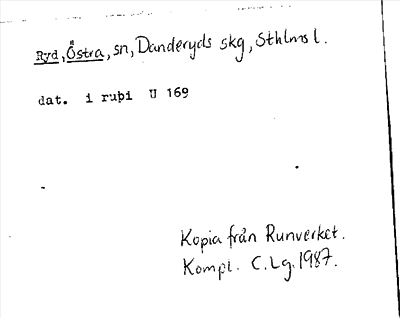 Ryd, Östra, sn, Danderyds skg, Sthlms l.
dat. i ruþi U 169
Kopia från Runverket.
Kompl. C.Lg. 1987.